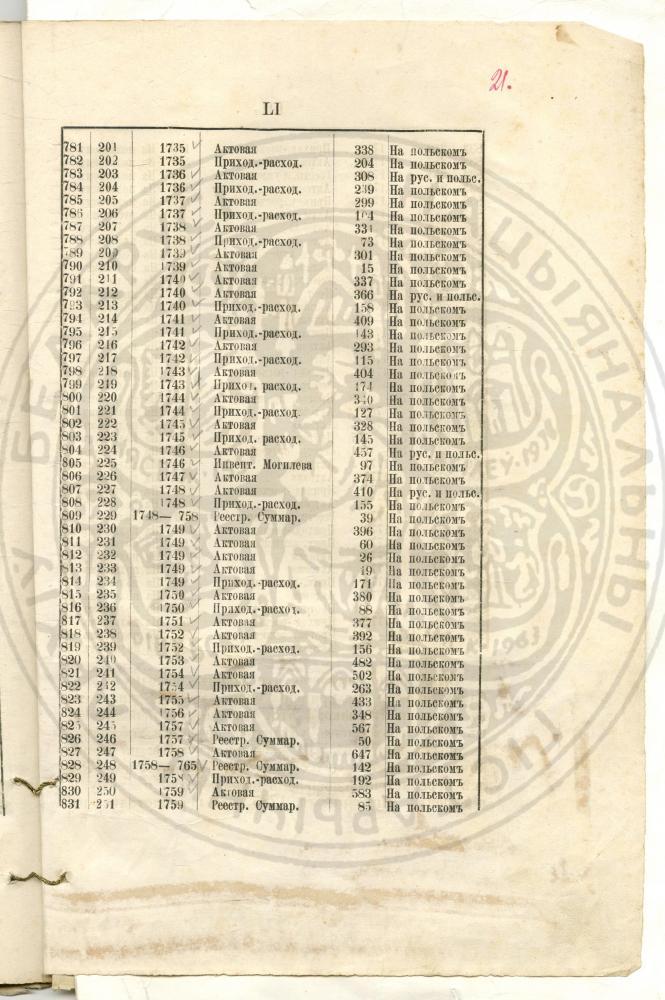 21.
LI
781 201 1735 Актовая 338 На польскомъ
782 202 1735 Приход.-расход. 204 На польскомъ
783 203 1736 Актовая 308 На рус. и польс.
784 204 1736 Приход.-расход. На польскомъ
785 205 1737 Актовая 299 На польскомъ
786 206 1737 Приход.-расход. На польскомъ
787 207 1738 Актовая На польскомъ
788 208 1738 Приход.-расход. 73 На польскомъ
789 209 1739 Актовая 301 На польскомъ
790 210 1739 Актовая 15 На польскомъ
791 211 1740 Актовая 337 На польскомъ
792 212 1740 Актовая 366 На рус. и польс.
793 213 1740 Приход.-расход. 158 На польскомъ
794 214 1741 Актовая 409 На польскомъ
795 215 1741 Приход.-расход. 143 На польскомъ
796 216 1742 Актовая 293 На польскомъ
797 217 1742 Приход.-расход. 115 На польскомъ
798 218 1743 Актовая 404 На польскомъ
799 219 1743 Приход. расход. 174 На польскомъ
800 220 1744 Актовая На польскомъ
801 221 1744 Приход.-расход. 127 На польскомъ
802 222 1745 Актовая 328 На польскомъ
803 223 1745 Приход. расход. 145 На польскомъ
804 224 1746 Актовая 457 На рус. и польс.
805 225 1746 Инвент. Могилева 97 На польскомъ
806 226 1747 Актовая 374 На польскомъ
807 227 1748 Актовая 410 На рус. и польс.
808 228 1748 Приход.-расход. 155 На польскомъ
809 229 1748— 758 Реестр. Суммар. 39 На польскомъ
810 230 1749 Актовая 396 На польскомъ
811 231 1749 Актовая 60 На польскомъ
812 232 1749 Актовая 26 На польскомъ
813 233 1749 Актовая На польскомъ
814 234 1749 Приход.-расход. 171 На польскомъ
815 235 1750 Актовая 380 На польскомъ
816 236 1750 Приход.-расход. 88 На польскомъ
817 237 1751 Актовая 377 На польскомъ
818 238 1752 Актовая 392 На польскомъ
819 239 1752 Приход.-расход. 156 На польскомъ
820 240 1753 Актовая 482 На польскомъ
821 241 1754 Актовая 502 На польскомъ
822 242 1754 Приход.-расход. 263 На польскомъ
823 243 1755 Актовая 433 На польскомъ
824 244 1756 Актовая 348 На польскомъ
825 245 1757 Актовая 567 На польскомъ
826 246 1757 Реестр. Суммар. 50 На польскомъ
827 247 1758 Актовая 647 На польскомъ
828 248 1758— 765 Реестр. Суммар. 142 На польскомъ
829 249 1758 Приход.-расход. 192 На польскомъ
830 250 1759 Актовая 583 На польскомъ
831 251 1759 Реестр. Суммар. 85 На польскомъ